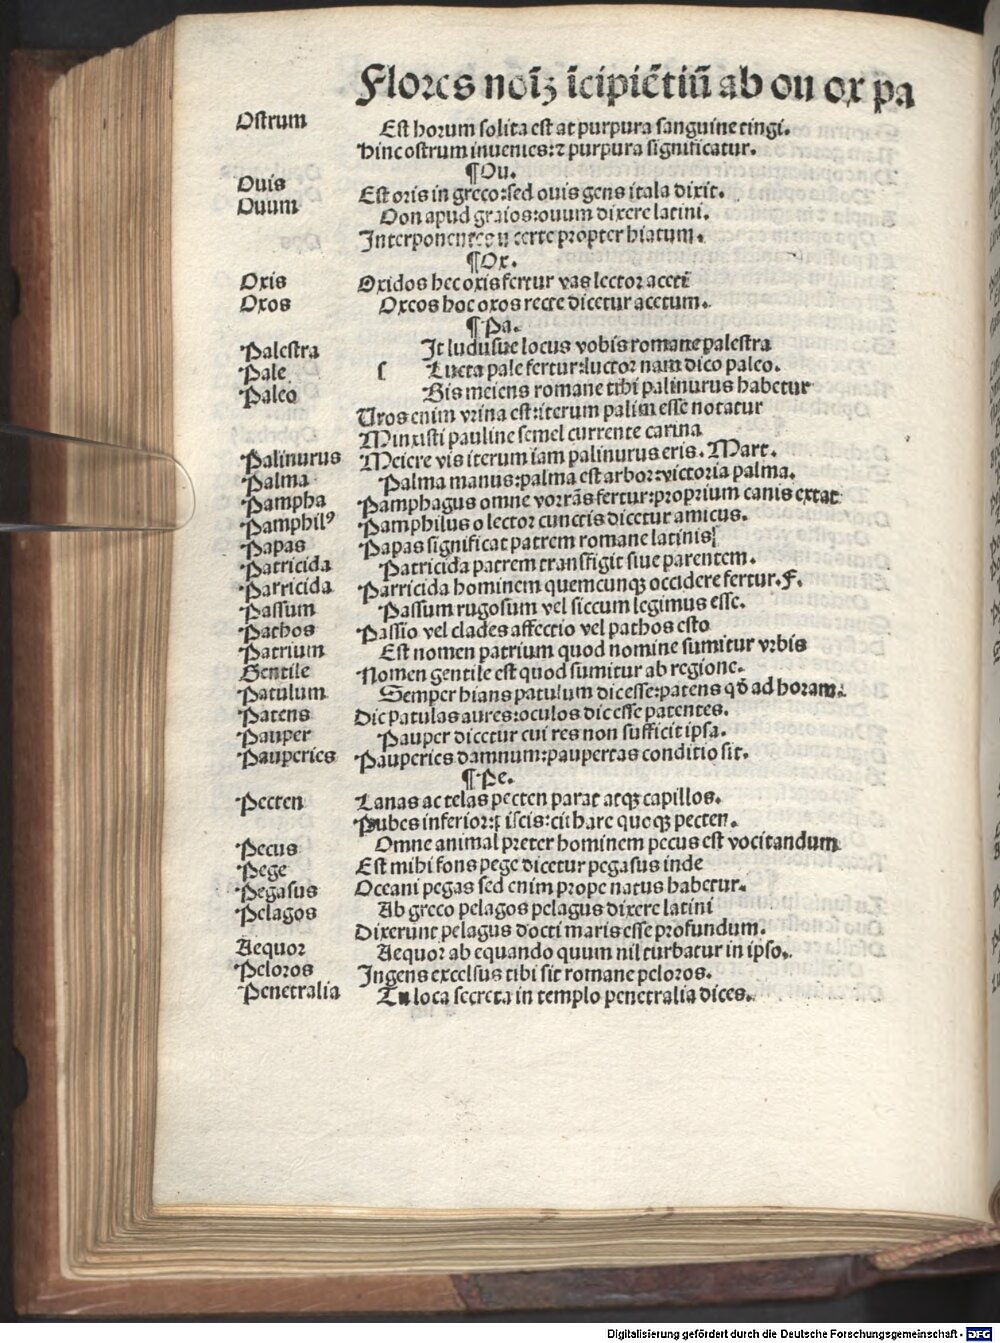 Flores noīꝫ īcipiētiū ab ou ox pa
Ostrum Est horum solita est at purpura sanguine tingi.
Hinc ostrum inuenies:⁊ purpura significatur.
¶Ou.
Ouis Est oris in greco:sed ouis gens itala dixit.
Ouum Oon apud graios:ouum dixere latini.
Interponentes u certe propter hiatum.
¶Ox.
Oxis Oxidos hec oxis fertur vas lector aceti
Oxos Oxeos hoc oxos recte dicetur acetum.
¶Pa.
Palestra It ludusue locus vobis romane palestra
Pale ſ Lucta pale fertur:luctor nam dico paleo.
Paleo Bis meiens romane tibi palinurus habetur
Uros enim vrina est:iterum palim esse notatur
Minxisti pauline semel currente carina
Palinurus Meiere vis iterum iam palinurus eris. Mart.
Palma Palma manus:palma est arbor:victoria palma.
Pampha Pamphagus omne vorrās fertur:proprium canis extat
Pamphilꝰ Pamphilus o lector cunctis dicetur amicus.
Papas Papas significat patrem romane latinis
Patricida Patricida patrem transfigit siue parentem.
Parricida Parricida hominem quemcunqꝫ occidere fertur. F.
Passum Passum rugosum vel siccum legimus esse.
Pathos Passio vel clades affectio vel pathos esto
Patrium Est nomen patrium quod nomine sumitur vrbis
Gentile Nomen gentile est quod sumitur ab regione.
Patulum Semper hians patulum dic esse:patens qđ ad horam.
Patens Dic patulas aures:oculos dic esse patentes.
Pauper Pauper dicetur cui res non sufficit ipsa.
Pauperies Pauperies damnum:paupertas conditio sit.
¶Pe.
Pecten Lanas ac telas pecten parat atqꝫ capillos.
Pubes inferior: iscis:cithare quoqꝫ pecten.
Pecus Omne animal preter hominem pecus est vocitandum
Pege Est mihi fons pege dicetur pegasus inde
Pegasus Oceani pegas sed enim prope natus habetur.
Pelagos Ab greco pelagos pelagus dixere latini
Dixerunt pelagus docti maris esse profundum.
Aequor Aequor ab equando quum nil turbatur in ipso.
Peloros Ingens excelsus tibi sit romane peloros.
Penetralia Tu loca secreta in templo penetralia dices.
Digitalisierung gefördert durch die Deutsche Forschungsgemeinschaft - DFG